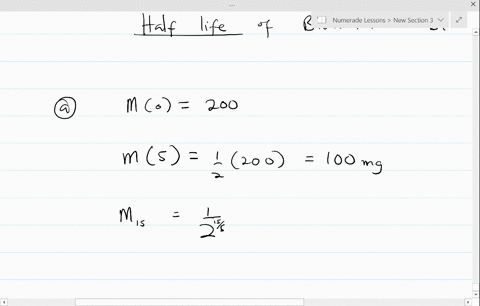 ...
Numerade Lessons > New Section 3
Half life of
ⓐ M(0) = 200
m(5) = 1/2 (200) = 100 mg
M₁₅ = 1/2^(15/5)